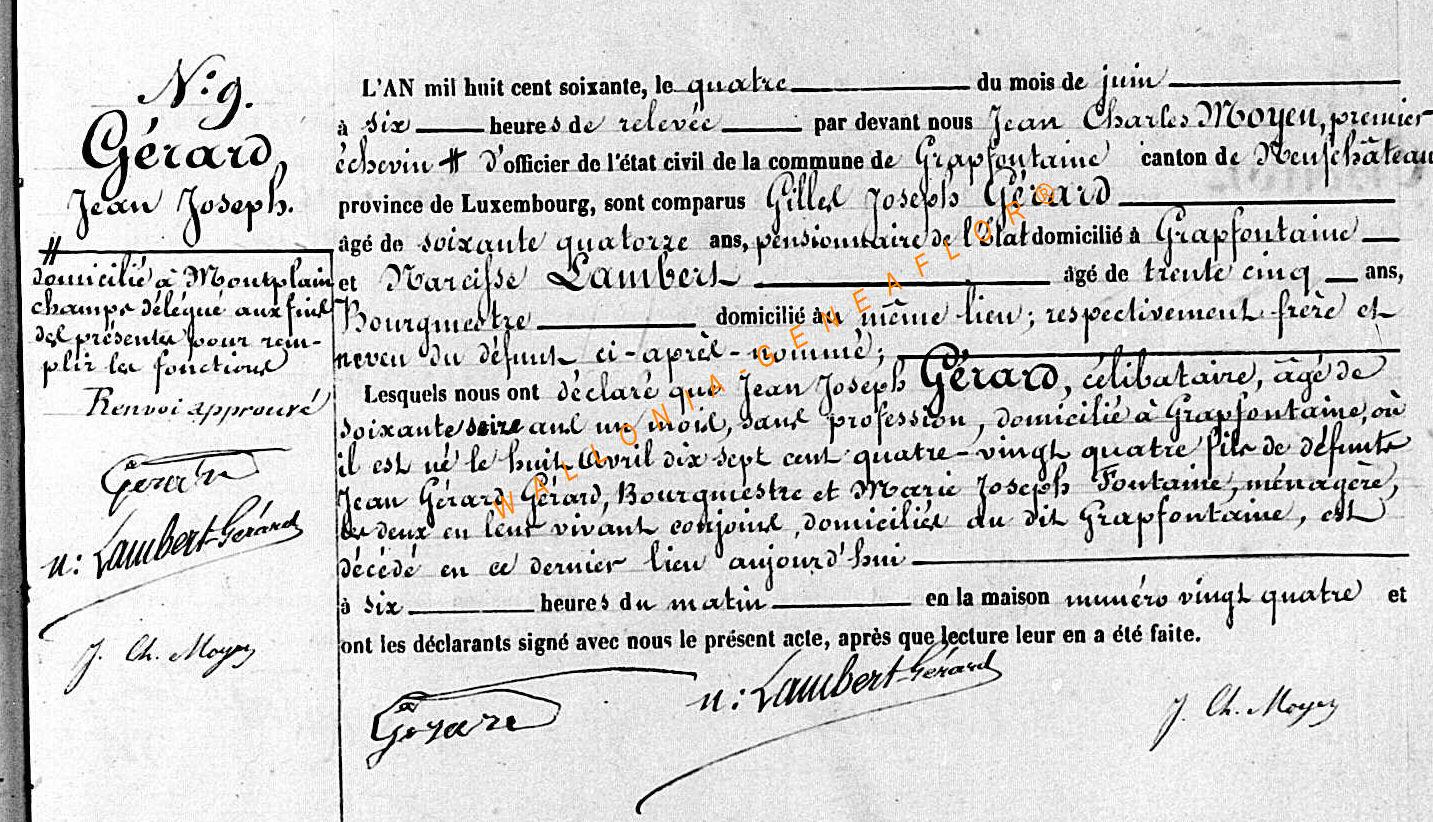 N.° 9.
Gérard,
Jean Joseph.
#
domicilié à Montplain
champs délégué aux fins
des présentes pour rem-
plir les fonctions
Renvoi approuvé
Gérard
n: Lambert-Gérard
J. Ch. Moyen
L'AN mil huit cent soixante, le quatre du mois de juin
à six heures de relevée par devant nous Jean Charles Moyen, premier
échevin # d'officier de l'état civil de la commune de Grapfontaine canton de Neufchâteau
province de Luxembourg, sont comparus Gilles Joseph Gérard
âgé de soixante quatorze ans, pensionnaire de l'Etat domicilié à Grapfontaine
et Narcisse Lambert âgé de trente cinq ans,
Bourgmestre domicilié au même lieu; respectivement frère et
neveu du défunt ci-après-nommé;
Lesquels nous ont déclaré que Jean Joseph Gérard, célibataire, âgé de
soixante seize ans un mois, sans profession, domicilié à Grapfontaine, où
il est né le huit Avril dix sept cent quatre-vingt quatre fils de défunts
Jean Gérard Gérard, Bourgmestre et Marie Joseph Fontaine, ménagère,
les deux en leur vivant conjoins, domiciliés au dit Grapfontaine, est
décédé en ce dernier lieu aujourd'hui
à six heures du matin en la maison numéro vingt quatre et
ont les déclarants signé avec nous le présent acte, après que lecture leur en a été faite.
Gérard
n: Lambert-Gérard
J. Ch. Moyen
WALLONIA-GENEAFLOR®